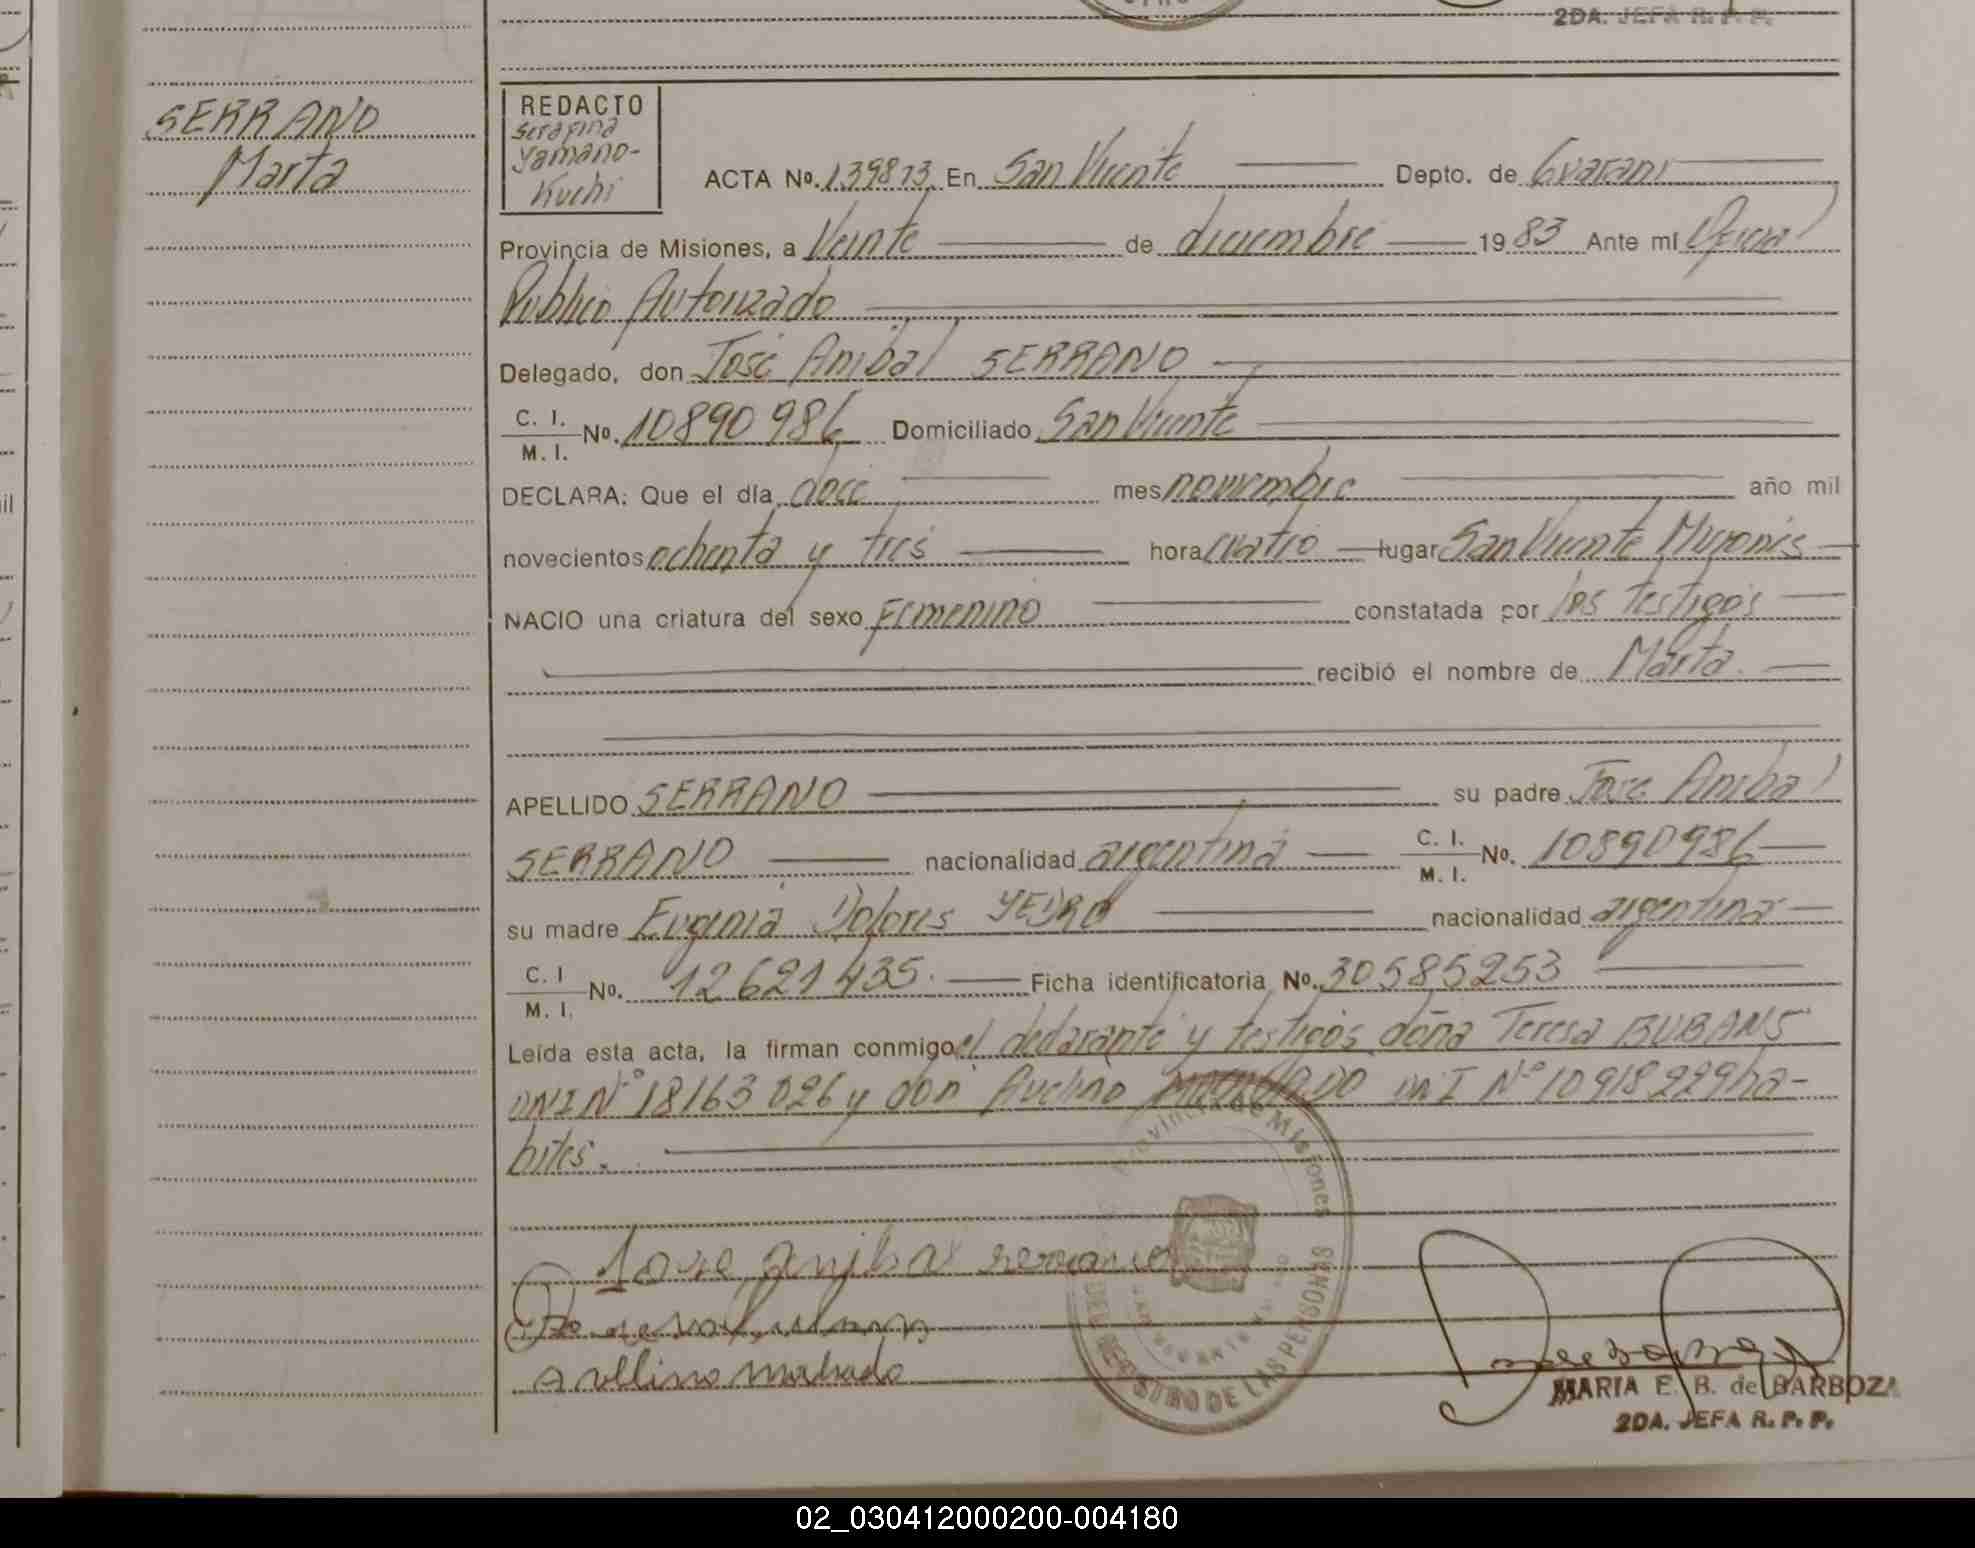 2DA. JEFA R. P. P.
SERRANO
Marta
REDACTO
Serafina
Yamano-
Kuchi
ACTA No. 139873 En San Vicente Depto. de Guarani
Provincia de Misiones, a Veinte de diciembre 1983 Ante mi Oficial
Publico Autorizado
Delegado, don José Anibal SERRANO
C. I.
M. I. No. 10890986 Domiciliado San Vicente
DECLARA: Que el día doce mes noviembre año mil
novecientos ochenta y tres hora cuatro lugar San Vicente Misiones
NACIO una criatura del sexo Femenino constatada por los testigos
recibió el nombre de Marta.
APELLIDO SERRANO su padre José Anibal
SERRANO nacionalidad argentina C. I.
M. I. No. 10890986
su madre Eugenia Dolores YEDRO nacionalidad argentina
C. I
M. I. No. 12621435. Ficha identificatoria No. 30585253
Leída esta acta, la firman conmigo el declarante y testigos doña Teresa BUBANS
DNI Nº 18163026 y don Avelino MACHADO DNI Nº 10918229 há-
biles.
Provincia de Misiones
DEL REGISTRO DE LAS PERSONAS
Jose anibal serrano
avellino machado
MARIA E. B. de BARBOZA
2DA. JEFA R. P. P.
02_030412000200-004180